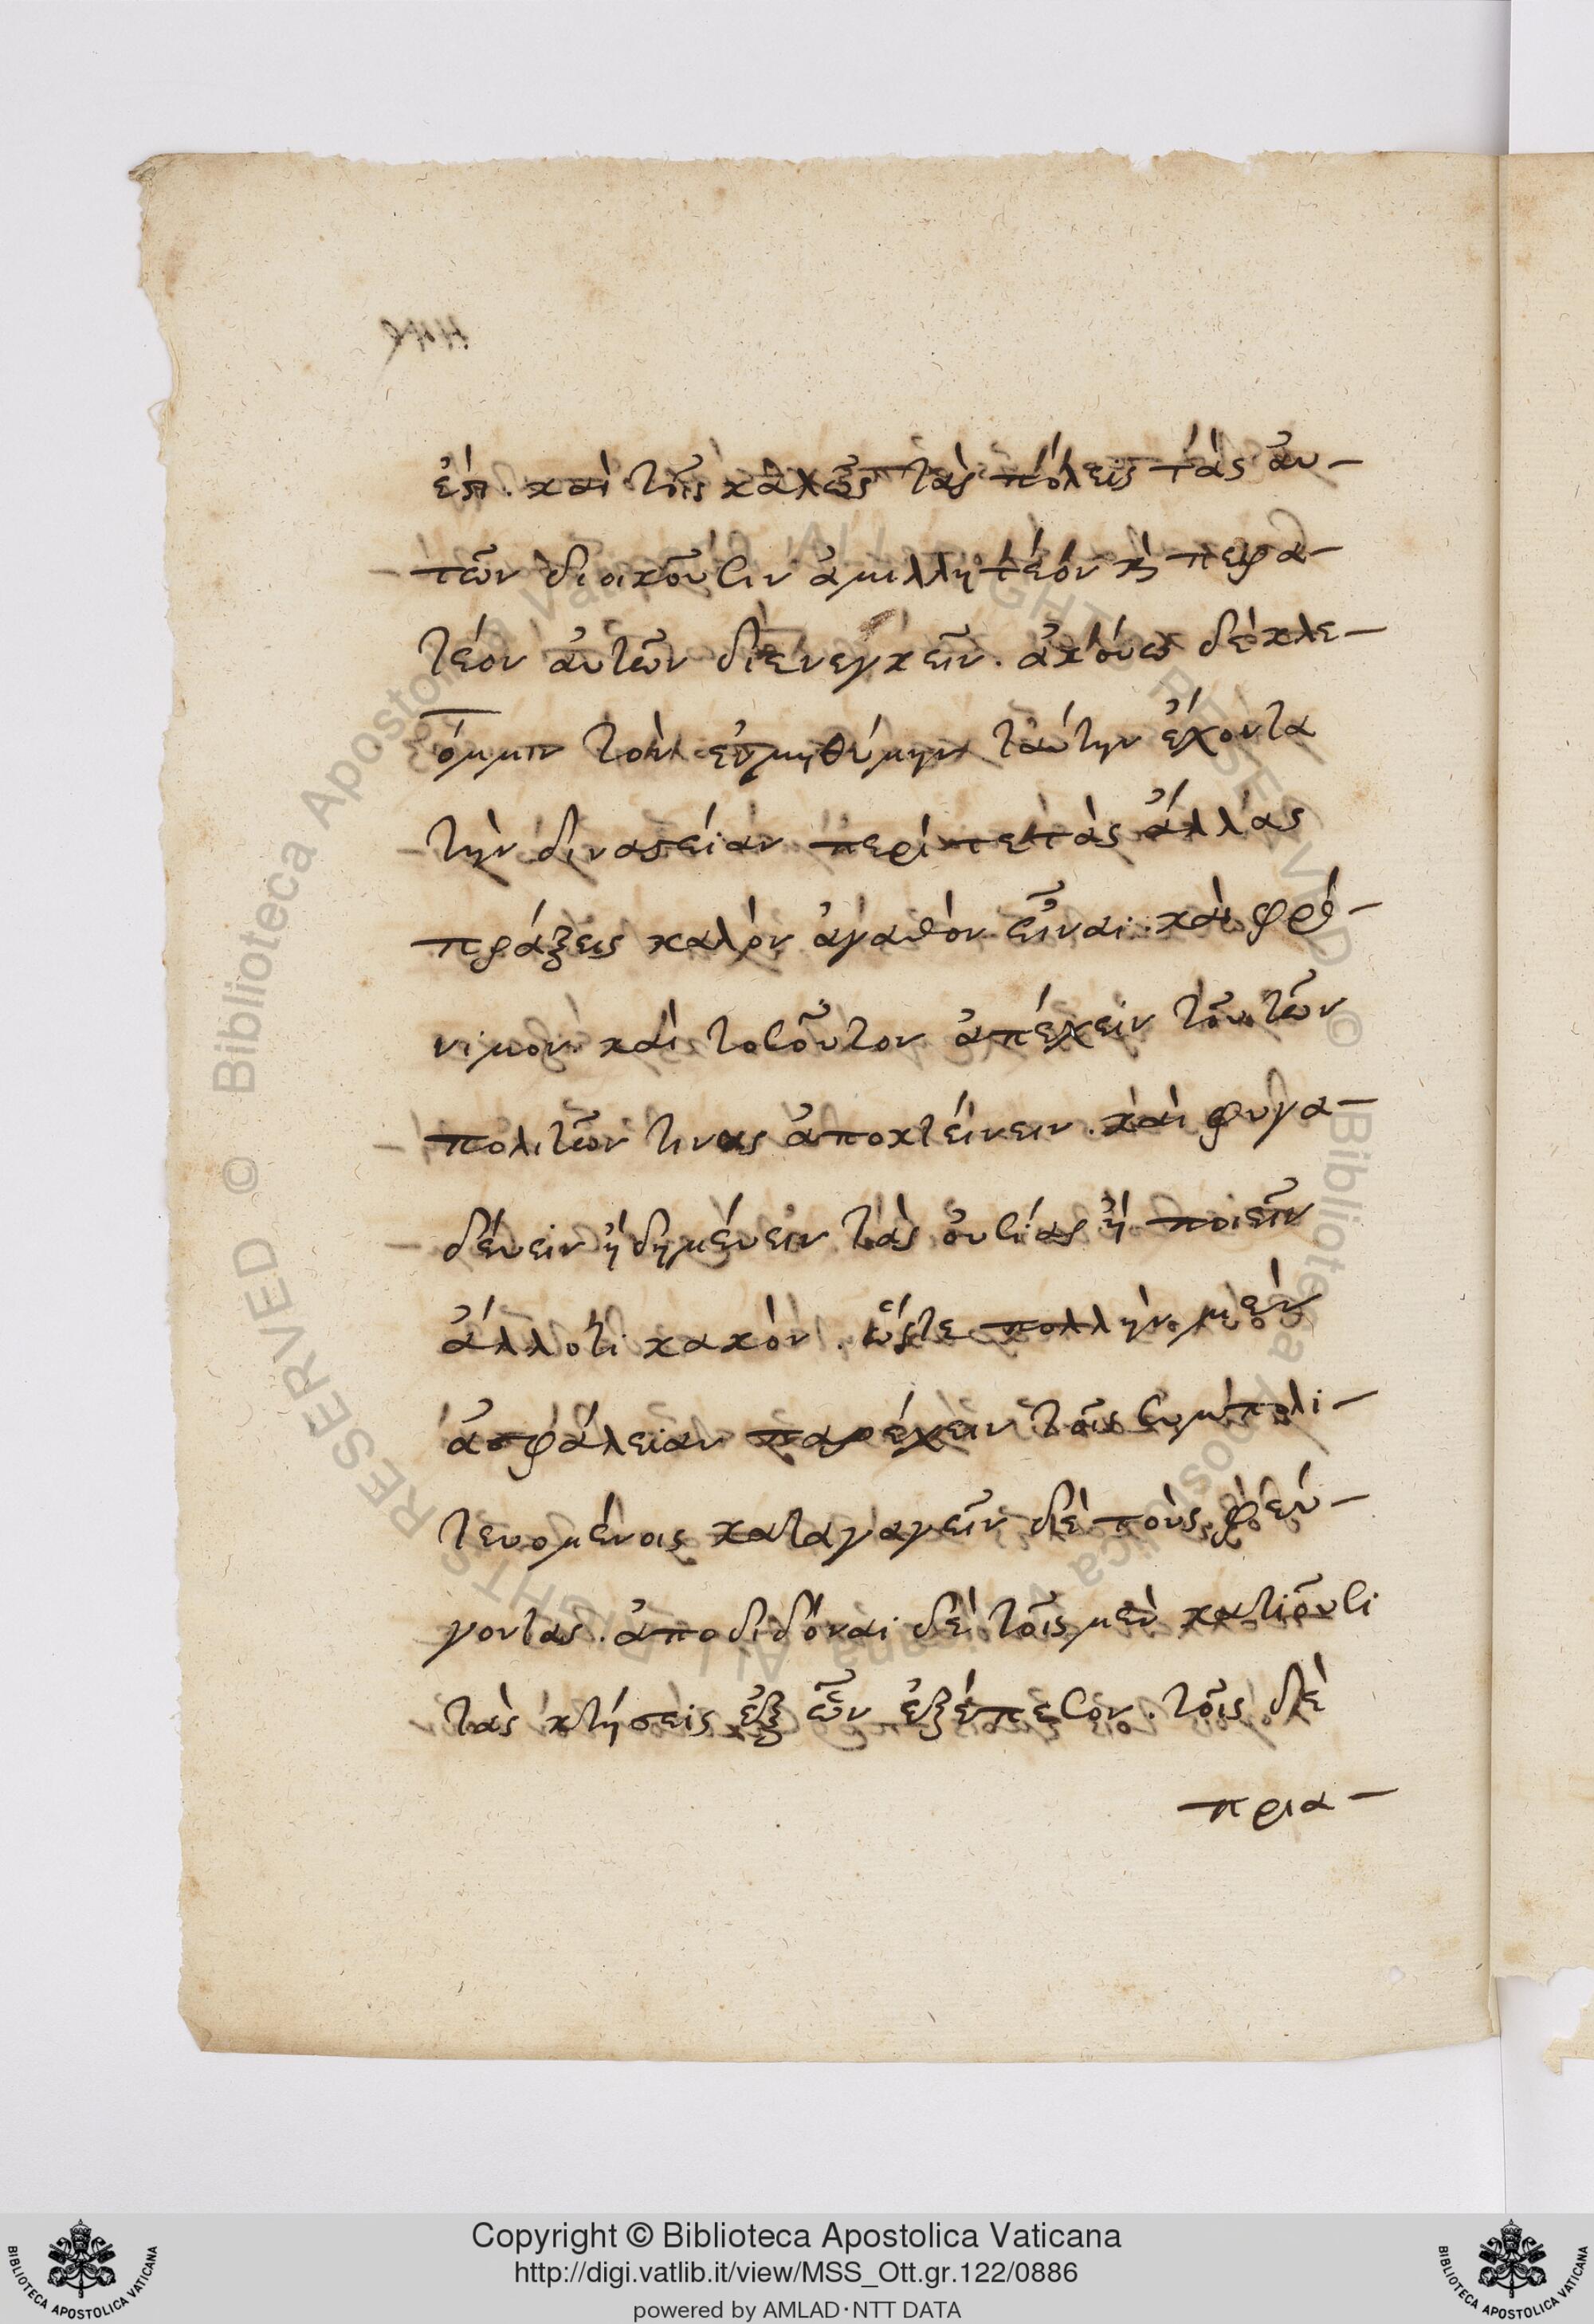 ἐστι. καὶ τοῖς καλῶς τὰς πόλεις τὰς αὐ-
τῶν διοικοῦσιν ἀμιλλητέον κὶ πειρα-
τέον αὐτῶν διενεγκεῖν. ἀκούω δὲ κλε-
όμμιν τὸν ἐν μηθύμνη ταύτην ἔχοντα
τὴν διναστείαν περί τε τὰς ἄλλας
πράξεις καλὸν ἀγαθὸν εἶναι. καὶ φρό-
νιμον. καὶ τοσοῦτον ἀπέχειν τοῦ τῶν
πολιτῶν τινας ἀποκτείνειν. καὶ φυγα-
δέυειν ἠ δημέυειν τὰς οὐσίας ἢ ποιεῖν
ἀλλότι κακὸν. ὥστε πολλὴν μὲν
ἀσφάλειαν παρέχειν τοῖς συμπολι-
τευομένοις καταγαγεῖν δὲ τοὺς φεύ-
γοντας. ἀποδιδόναι δὲ τοῖς μὲν κατιοῦσι
τὰς κτήσεις ἐξ ὧν ἐξέπεσον. τοῖς δὲ
πρια-
Copyright © Biblioteca Apostolica Vaticana
http://digi.vatlib.it/view/MSS_Ott.gr.122/0886
powered by AMLAD·NTT DATA
BIBLIOTECA APOSTOLICA VATICANA
BIBLIOTECA APOSTOLICA VATICANA